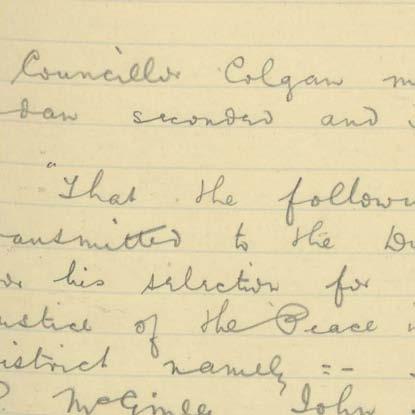 Councillor Colgan m
dan seconded and
"That the followin
ansmitted to the Du
or his selection for
ustice of the Peace
istrict namely :-
McGinley John